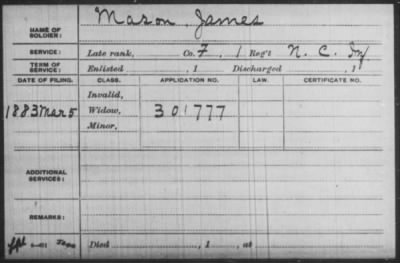 Mason, James
NAME OF SOLDIER:
SERVICE: Late rank, Co. F, 1 Reg't N. C. Inf
TERM OF SERVICE: Enlisted , 1 Discharged , 1
DATE OF FILING. CLASS. APPLICATION NO. LAW. CERTIFICATE NO.
Invalid,
1883 Mar 5 Widow, 301777
Minor,
ADDITIONAL SERVICES:
REMARKS:
Died , 1 , at